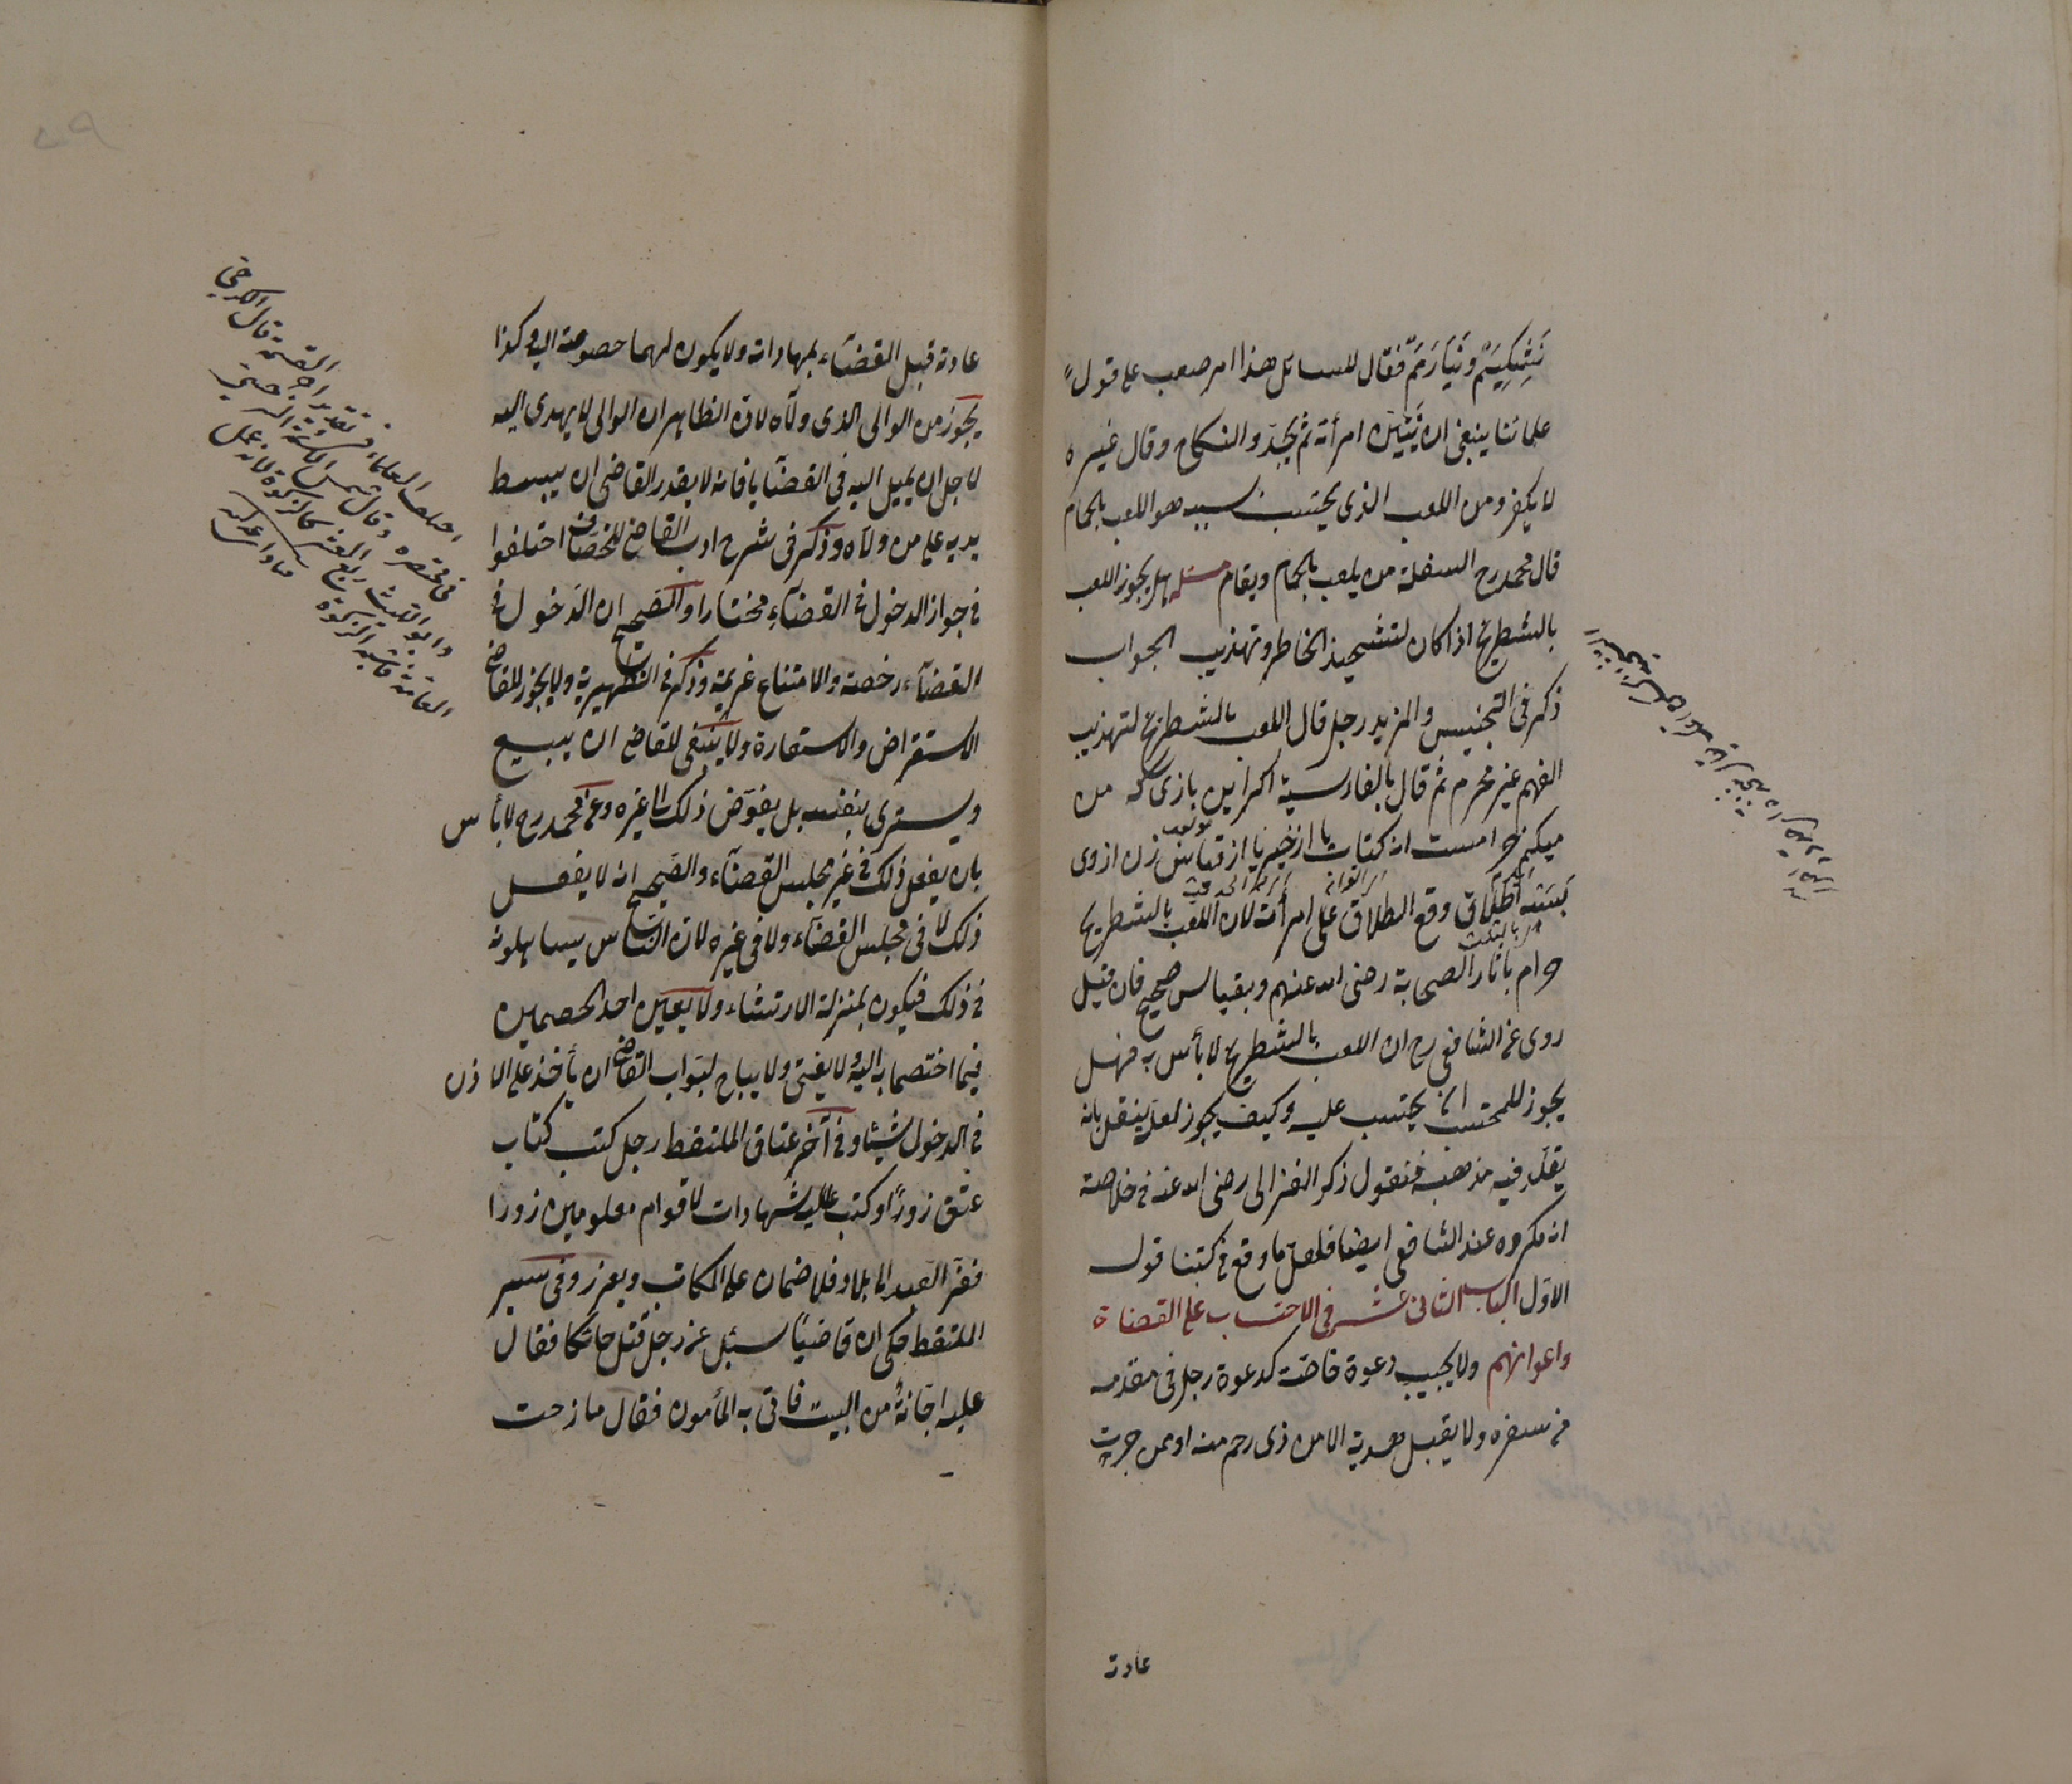 نشكيم ونيارمم فقال للسائل هذا امر صعب على قول
علمائنا ينبغى ان تبين امرأته ثم يجدد النكاح وقال غيره
لا يكفر ومن اللعب الذى يحتسب بسببه هو اللعب بالحمام
قال محمد رح السفلة من يلعب بالحمام ويقامر مسئلة هل يجوز اللعب
بالشطرنج اذا كان لتشحيذ الخاطر وتهذيب الجواب
ذكر فى التجنيس والمزيد رجل قال اللعب بالشطرنج لتهذيب
الفهم غير محرم ثم قال بالفارسية اكر اين بازى كه من
ميكنم حرامست از كتاب يا از خبر يا از قياس زن از وى
بسه طلاق وقع الطلاق على امرأته لان اللعب بالشطرنج
حرام باثار الصحابة رضى الله عنهم وبقياس صحيح فان قيل
روى عن الشافعى رح ان اللعب بالشطرنج لا بأس به فهل
يجوز للمحتسب ان يحتسب عليه وكيف يجوز لعله ينقل بانه
يقلد فيه مذهبه فنقول ذكر الغزالى رضى الله عنه فى خلاصته
انه مكروه عند الشافعى ايضا فلعل ما وقع فى كتبنا قوله
الاول الباب الثانى عشر فى الاحتساب على القضاة
واعوانهم ولا يجيب دعوة خاصة كدعوة رجل فى مقدمه
من سفره ولا يقبل هدية الا من ذى رحم منه او ممن جرت
عادته
عادته قبل القضاء بمهاداته ولا يكون لهما خصومة اليه وكذا
يجوز من الوالى الذى ولاه لان الظاهر ان الوالى لا يهدى اليه
لاجل ان يميل اليه فى القضايا فانه لا يقدر القاضى ان يبسط
يديه على من ولاه وذكر فى شرح ادب القاضى للخصاف اختلفوا
فى جواز الدخول فى القضاء مختارا والصحيح ان الدخول فى
القضاء رخصة والامتناع عزيمة وذكر فى الظهيرية ولا يجوز للقاضى
الاستقراض والاستعارة ولا ينبغى للقاضى ان يبيع
ويشترى بنفسه بل يفوض ذلك الى غيره وعن محمد رح لا بأس
بان يفعل ذلك فى غير مجلس القضاء والصحيح انه لا يفعل
ذلك لا فى مجلس القضاء ولا فى غيره لان الناس يساهلونه
فى ذلك فيكون بمنزلة الارتشاء ولا يعين احد الخصمين
فيما اختصما به اليه ولا يفتى ولا يباح لبواب القاضى ان يأخذ على الاذن
فى الدخول شيئا وفى آخر عتاق الملتقط رجل كتب كتاب
عتق زورا وكتب عليه شهادات لاقوام معلومين زورا
ففر العبد الى بلاد فلا ضمان على الكاتب ويعزر وفى سير
الملتقط حكى ان قاضيا سئل عن رجل قتل حائكا فقال
عليه اجانة من البيت فاتى به المأمون فقال مازحت